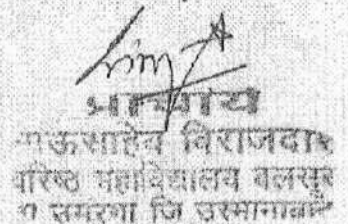 प्राचार्य
भाऊसाहेब विराजदार
वरिष्ठ महाविद्यालय बलसूर
उमरगा जि उस्मानाबाद